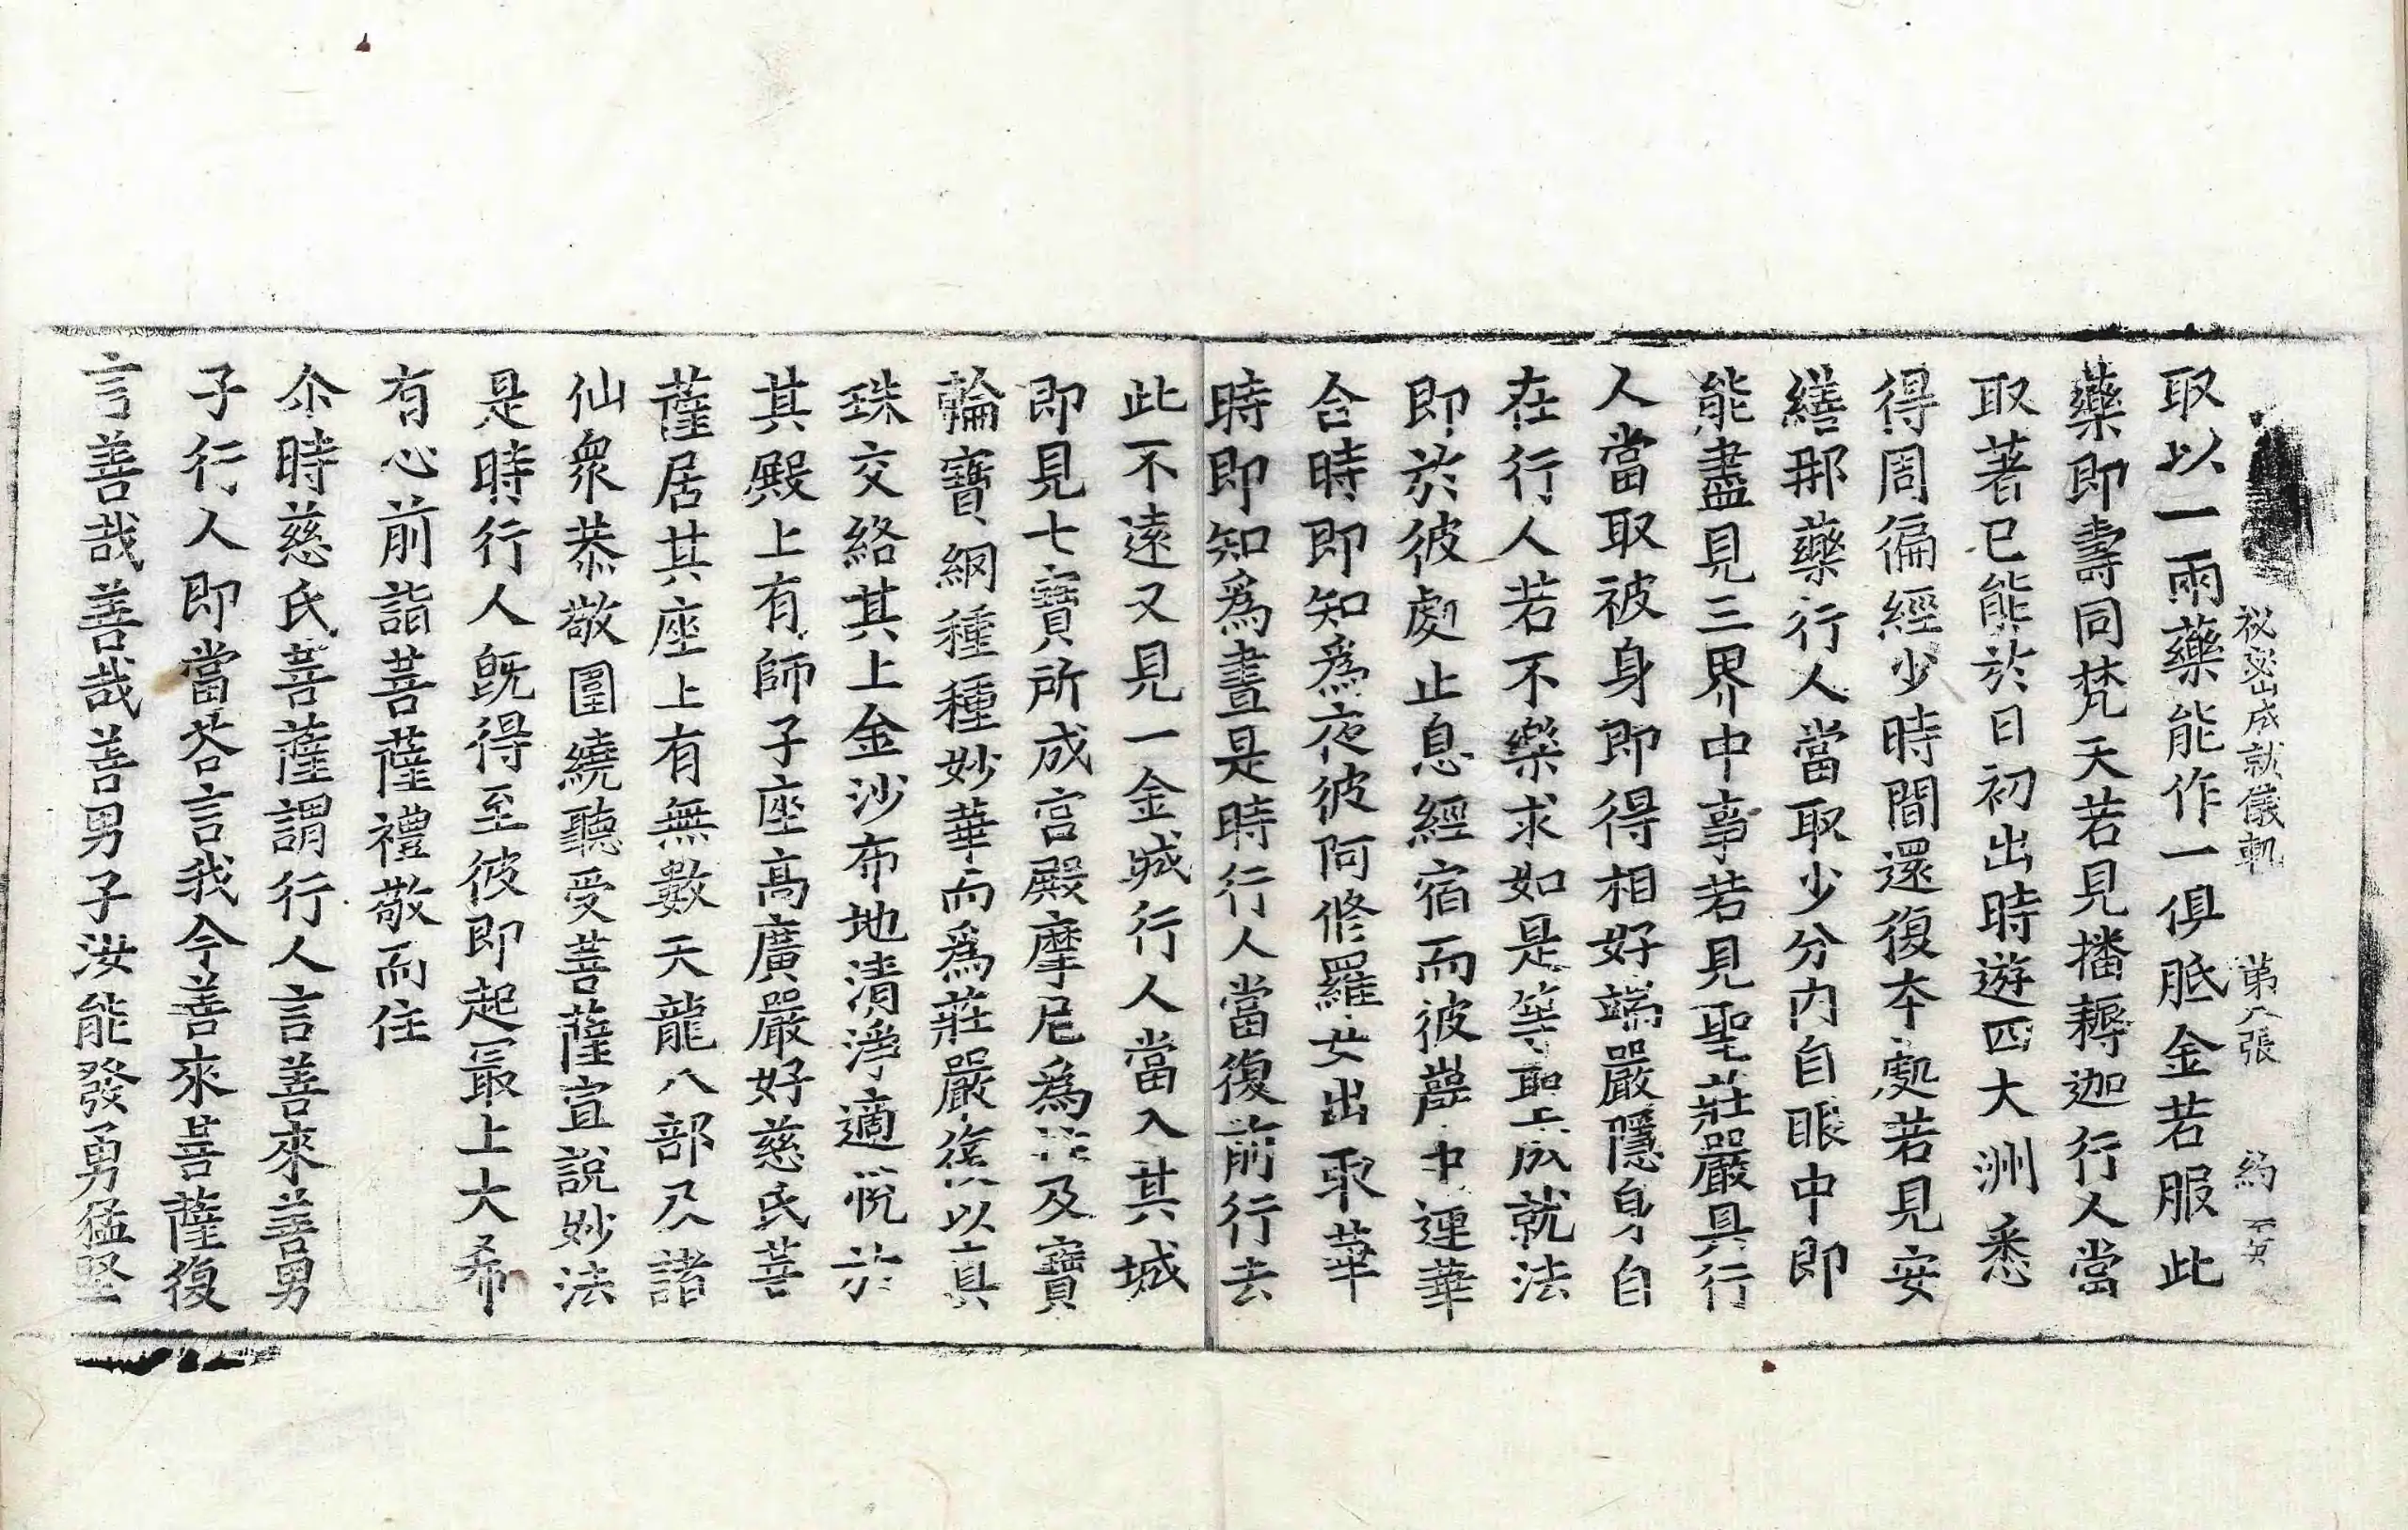 祕密成就儀軌 第八張 約
取以一兩藥能作一俱胝金若服此
藥即壽同梵天若見播耨迦行人當
取著已能於日初出時遊四大洲悉
得周徧經少時間還復本處若見安
繕那藥行人當取少分內自眼中即
能盡見三界中事若見聖莊嚴具行
人當取被身即得相好端嚴隱身自
在行人若不樂求如是等聖上成就法
即於彼處止息經宿而彼巖中蓮華
合時即知爲夜彼阿修羅女出取華
時即知爲晝是時行人當復前行去
此不遠又見一金城行人當入其城
即見七寶所成宮殿摩尼爲柱及寶
輪寶網種種妙華而爲莊嚴復以真
珠交絡其上金沙布地清淨適悅於
其殿上有師子座高廣嚴好慈氏菩
薩居其座上有無數天龍八部及諸
仙衆恭敬圍繞聽受菩薩宣說妙法
是時行人旣得至彼即起最上大希
有心前詣菩薩禮敬而住
尒時慈氏菩薩謂行人言善來善男
子行人即當荅言我今善來菩薩復
言善哉善哉善男子汝能發勇猛堅